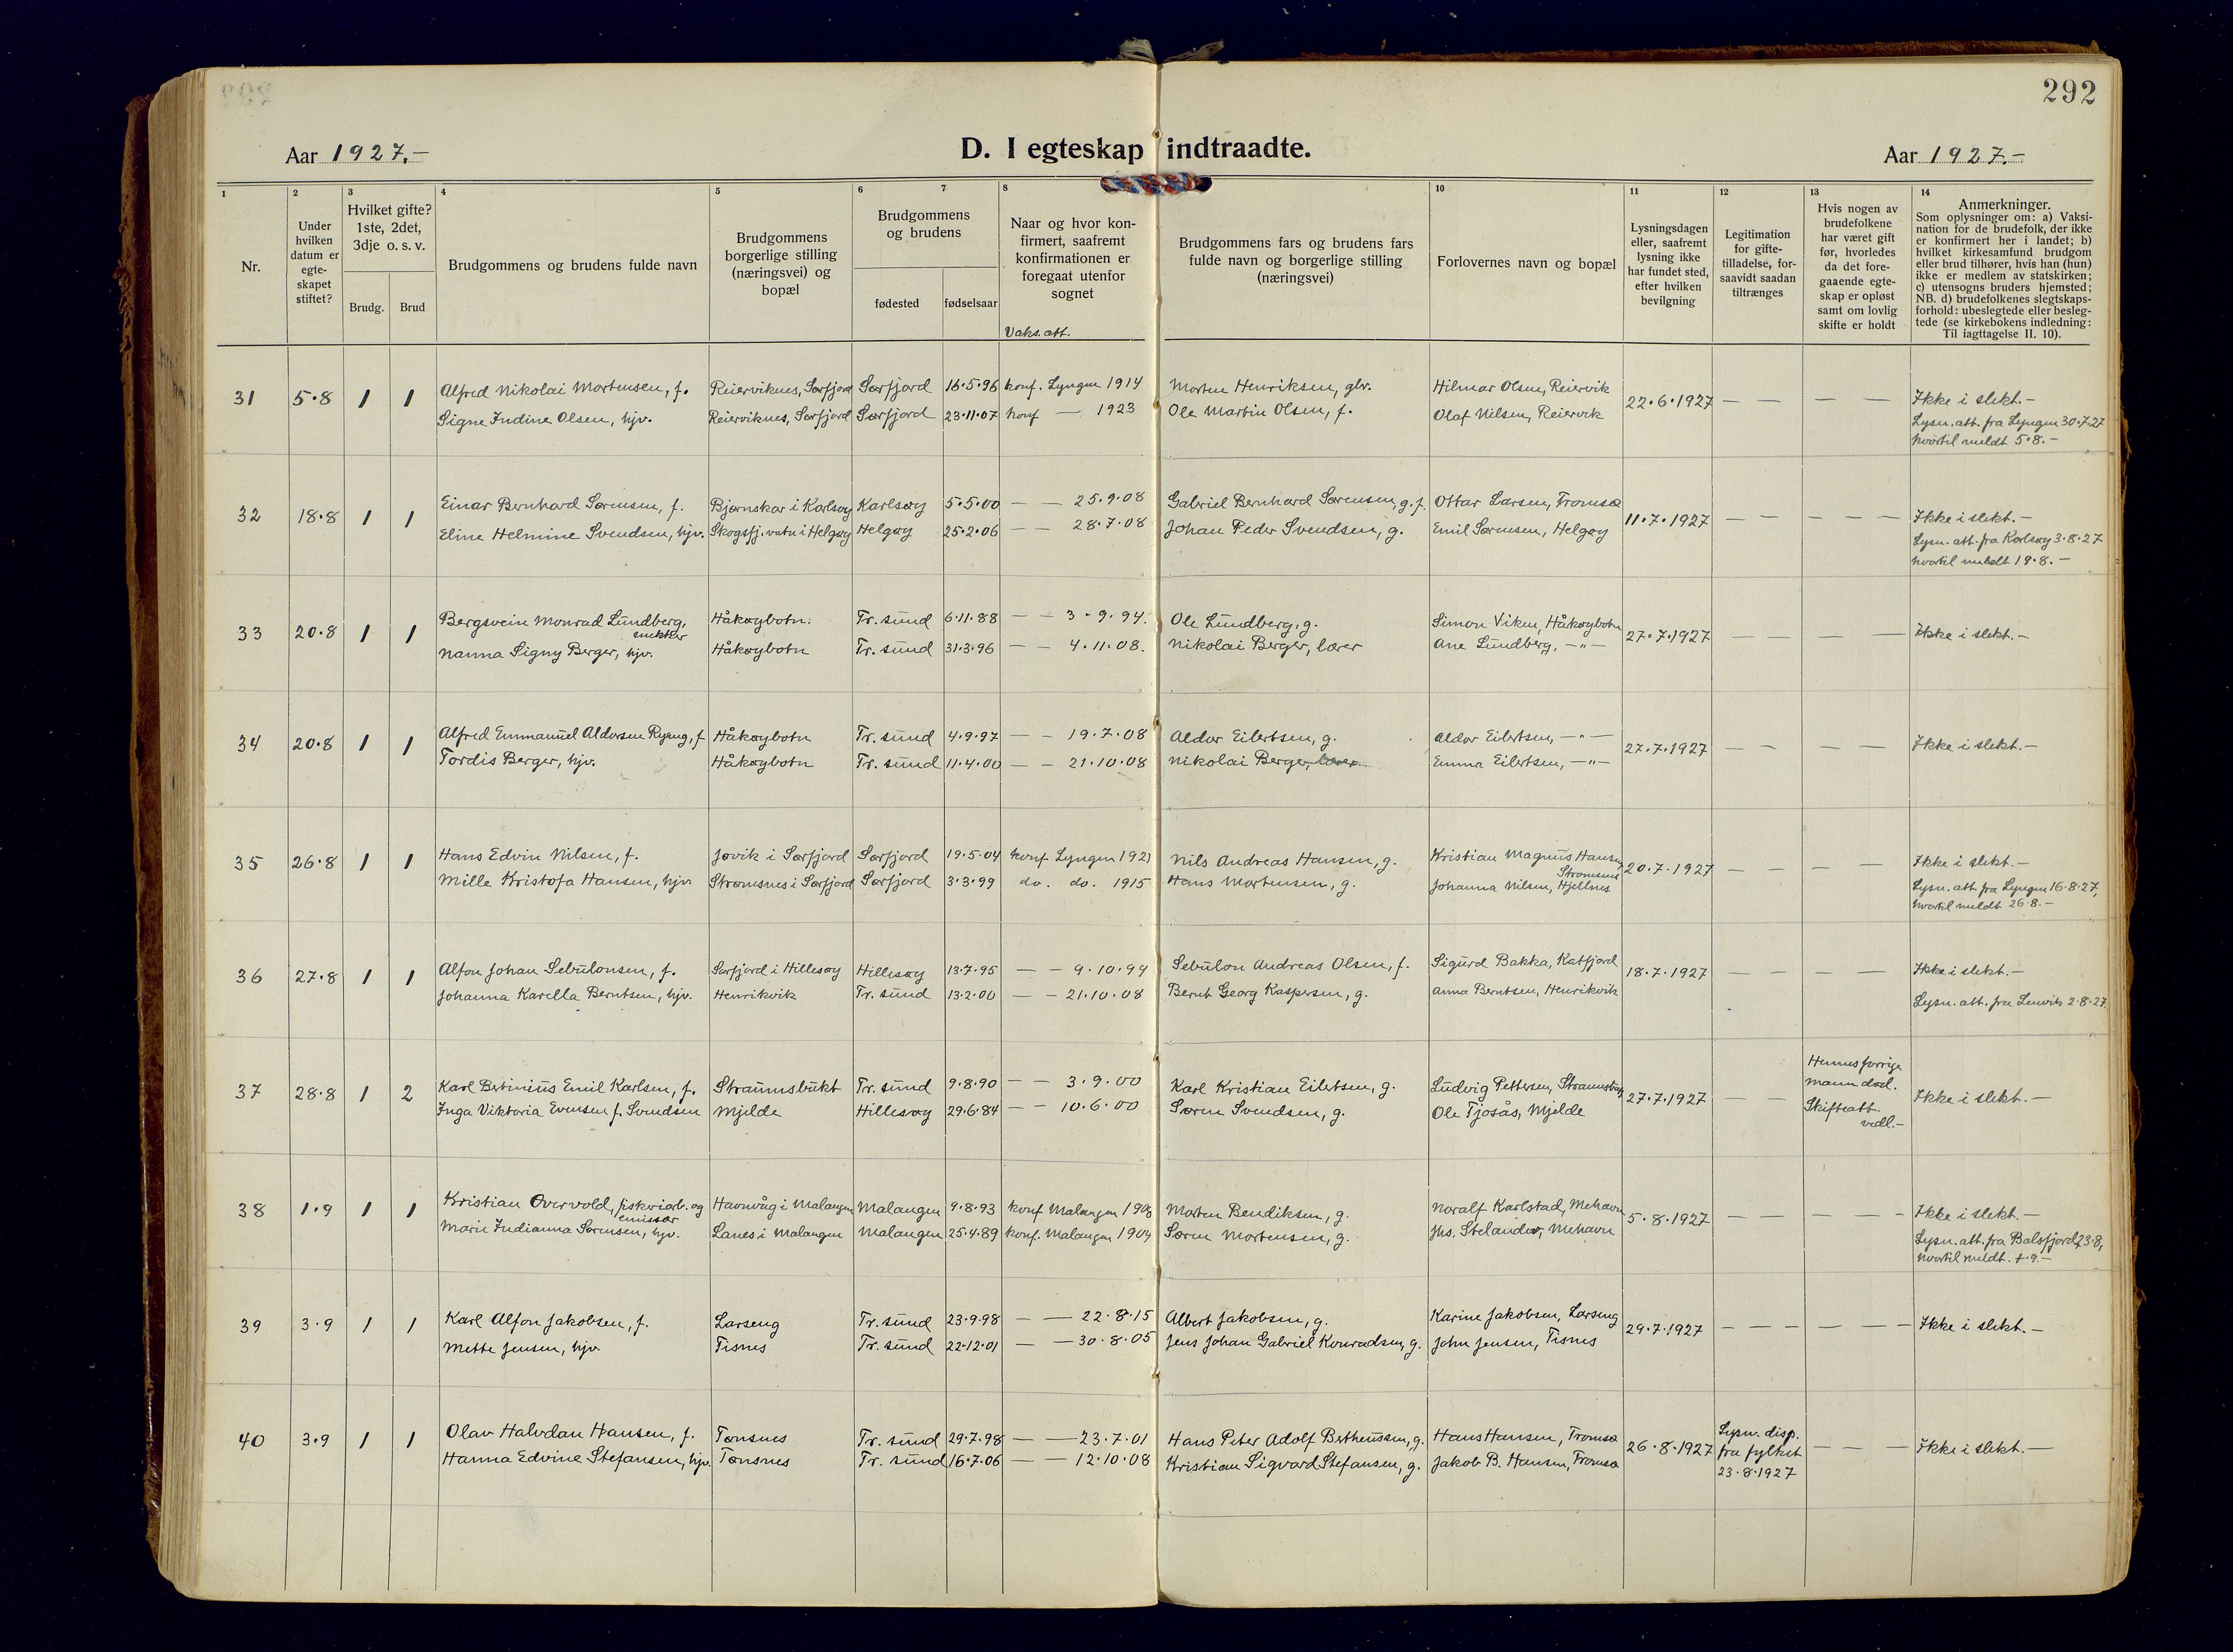 292
Aar 1927.-
D. I egteskap indtraadte.
Aar 1927.-
1
2
3
4
5
6
7
8
10
11
12
13
14
Nr.
Under hvilken datum er egte-skapet stiftet?
Hvilket gifte? 1ste, 2det, 3dje o. s. v.
Brudg.
Brud
Brudgommens og brudens fulde navn
Brudgommens borgerlige stilling (næringsvei) og bopæl
Brudgommens og brudens
fødested
fødselsaar
Naar og hvor kon-firmert, saafremt konfirmationen er foregaat utenfor sognet
Vaks.att.
Brudgommens fars og brudens fars fulde navn og borgerlige stilling (næringsvei)
Forlovernes navn og bopæl
Lysningsdagen eller, saafremt lysning ikke har fundet sted, efter hvilken bevilgning
Legitimation for gifte-tilladelse, for-saavidt saadan tiltrænges
Hvis nogen av brudefolkene har været gift før, hvorledes da det fore-gaaende egte-skap er opløst samt om lovlig skifte er holdt
Anmerkninger.
Som oplysninger om: a) Vaksi-nation for de brudefolk, der ikke er konfirmert her i landet; b) hvilket kirkesamfund brudgom eller brud tilhører, hvis han (hun) ikke er medlem av statskirken; c) utensogns bruders hjemsted; NB. d) brudefolkenes slegtskaps-forhold: ubeslegtede eller besleg-tede (se kirkebokens indledning: Til iagttagelse II. 10).
31 5.8 1 1 Alfred Nikolai Mortensen, f. Reierviknes, Sørfjord Sørfjord 16.5.96 konf. Lyngen 1914 Morten Henriksen, glv. Hilmar Olsen, Reiervik 22.6.1927 — — — — Ikke i slekt.-
Signe Indine Olsen, hjv. Reierviknes, Sørfjord Sørfjord 23.11.07 konf — 1923 Ole Martin Olsen, f. Olaf Nilsen, Reiervik Lysn. att. fra Lyngen 30.7.27
hvortil meldt 5.8.-
32 18.8 1 1 Einar Bernhard Sørensen, f. Bjørnskar i Karlsøy Karlsøy 5.5.00 — — 25.9.08 Gabriel Bernhard Sørensen, g.f. Ottar Larsen, Tromsø 11.7.1927 — — — — Ikke i slekt.-
Eline Helmine Svendsen, hjv. Skogsfj.vatn i Helgøy Helgøy 25.2.06 — — 28.7.08 Johan Peder Svendsen, g. Emil Sørensen, Helgøy Lysn. att. fra Karlsøy 3.8.27
hvortil meldt 19.8.-
33 20.8 1 1 Bergsvein Monrad Lundberg, snekker Håkøybotn. Tr. sund 6.11.88 — — 3.9.94. Ole Lundberg, g. Simon Viken, Håkøybotn 27.7.1927 — — — — Ikke i slekt.-
Nanna Signy Berger, hjv. Håkøybotn Tr. sund 31.3.96 — — 4.11.08. Nikolai Berger, lærer Ane Lundberg, —"—
34 20.8 1 1 Alfred Emmanuel Aldorsen Ryeng, f Håkøybotn Tr. sund 4.9.97 — — 19.7.08 Aldor Eilertsen, g. Aldor Eilertsen, —"— 27.7.1927 — — — — Ikke i slekt.-
Tordis Berger, hjv. Håkøybotn Tr. sund 11.4.00 — — 21.10.08 Nikolai Berger, lærer Emma Eilertsen, —"—
35 26.8 1 1 Hans Edvin Nilsen, f. Jøvik i Sørfjord Sørfjord 19.5.04 konf Lyngen 1921 Nils Andreas Hansen, g. Kristian Magnus Hansen, Strømsnes 20.7.1927 — — — — Ikke i slekt.-
Mille Kristofa Hansen, hjv. Strømsnes i Sørfjord Sørfjord 3.3.99 do. do. 1915 Hans Mortensen, g. Johanna Nilsen, Hjellnes Lysn. att fra Lyngen 16.8.27,
hvortil meldt 26.8.-
36 27.8 1 1 Alfon Johan Sebulonsen, f. Sørfjord i Hillesøy Hillesøy 13.7.95 — — 9.10.99 Sebulon Andreas Olsen, f. Sigurd Bakka, Katfjord 18.7.1927 — — — — Ikke i slekt.-
Johanna Karella Berntsen, hjv. Henrikvik Tr. sund 13.2.00 — — 21.10.08 Bernt Georg Kaspersen, g. Anna Berntsen, Henrikvik Lysn. att. fra Lenvik 2.8.27.
37 28.8 1 2 Karl Bertinius Emil Karlsen, f. Straumsbukt Tr. sund 9.8.90 — — 3.9.00 Karl Kristian Eilertsen, g. Ludvig Pettersen, Straumsbukt 27.7.1927 — — Hennes forrige mann død. Skifteatt. vedl.- Ikke i slekt.-
Inga Viktoria Evensen f. Svendsen Mjelde Hillesøy 29.6.84 — — 10.6.00 Søren Svendsen, g. Ole Tjosås, Mjelde
38 1.9 1 1 Kristian Overvold, fiskeriarb. og emissær Havnvåg i Malangen Malangen 9.8.93 konf Malangen 1908 Morten Bendiksen, g. Noralf Karlstad, Mehavn 5.8.1927 — — — — Ikke i slekt.-
Marie Indianna Sørensen, hjv. Lanes i Malangen Malangen 25.4.89 konf. Malangen 1904 Søren Mortensen, g. Jhs. Stelander, Mehavn Lysn. att. fra Balsfjord 23.8,
hvortil meldt. 7.9.-
39 3.9 1 1 Karl Alfon Jakobsen, f. Larseng Tr. sund 23.9.98 — — 22.8.15 Albert Jakobsen, g. Karine Jakobsen, Larseng 29.7.1927 — — — — — — Ikke i slekt.-
Mette Jensen, hjv. Tisnes Tr. sund 22.12.01 — — 30.8.05 Jens Johan Gabriel Konradsen, g. John Jensen, Tisnes
40 3.9 1 1 Olav Halvdan Hansen, f. Tønsnes Tr. sund 29.7.98 — — 23.7.01 Hans Peter Adolf Bertheussen, g. Hans Hansen, Tromsø 26.8.1927 Lysn. disp. fra fylket 23.8.1927 — — — Ikke i slekt.-
Hanna Edvine Stefansen, hjv. Tønsnes Tr. sund 16.7.06 — — 12.10.08 Kristian Sigvard Stefansen, g. Jakob B. Hansen, Tromsø